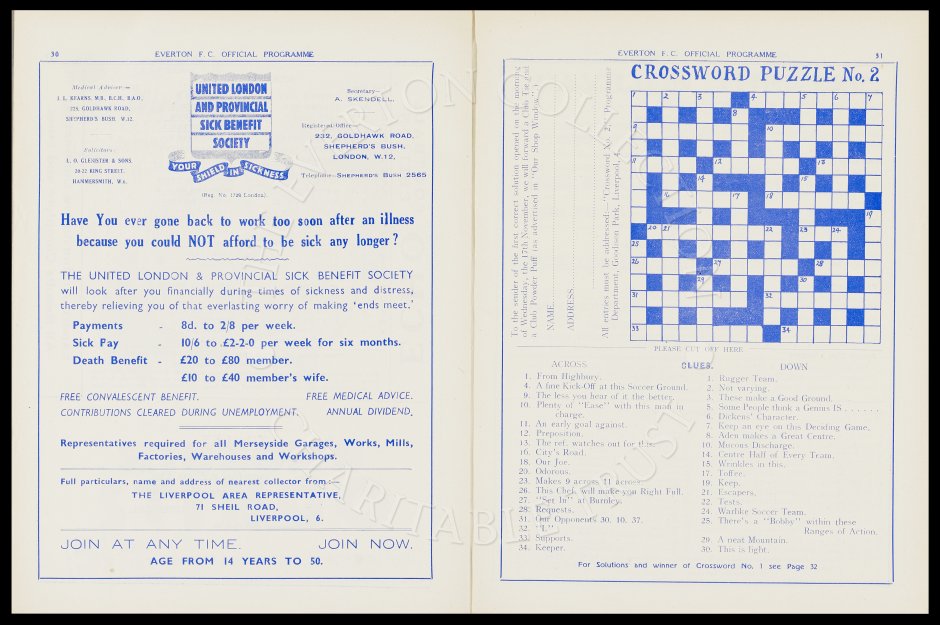 30
EVERTON F. C. OFFICIAL PROGRAMME
Medical Adviser:—
J. L. KEARNS, M.B., B.C.H., B.A.O.,
GOLDHAWK ROAD,
SHEPHERD'S BUSH, W.12.
Solicitors:—
L. O. GLENISTER & SONS,
20-22 KING STREET,
HAMMERSMITH, W.6.
UNITED LONDON
AND PROVINCIAL
SICK BENEFIT
SOCIETY
YOUR SHIELD IN SICKNESS
(Reg. No. 1799 London)
Secretary—
A. SKENDELL,
Registered Office—
232, GOLDHAWK ROAD,
SHEPHERD'S BUSH,
LONDON, W.12,
Telephone—SHEPHERDS BUSH 2565
Have You ever gone back to work too soon after an illness
because you could NOT afford to be sick any longer?
THE UNITED LONDON & PROVINCIAL SICK BENEFIT SOCIETY
will look after you financially during times of sickness and distress,
thereby relieving you of that everlasting worry of making 'ends meet.'
Payments - 8d. to 2/8 per week.
Sick Pay - 10/6 to £2-2-0 per week for six months.
Death Benefit - £20 to £80 member.
£10 to £40 member's wife.
FREE CONVALESCENT BENEFIT. FREE MEDICAL ADVICE.
CONTRIBUTIONS CLEARED DURING UNEMPLOYMENT. ANNUAL DIVIDEND,
Representatives required for all Merseyside Garages, Works, Mills,
Factories, Warehouses and Workshops.
Full particulars, name and address of nearest collector from:—
THE LIVERPOOL AREA REPRESENTATIVE,
71 SHEIL ROAD,
LIVERPOOL, 6.
JOIN AT ANY TIME. JOIN NOW.
AGE FROM 14 YEARS TO 50.
EVERTON F. C. OFFICIAL PROGRAMME
31
CROSSWORD PUZZLE No. 2
To the sender of the first correct solution opened on the morning
of Wednesday, the 17th November, we will forward a Club Ticket and
a Club Powder Puff (as advertised in "Our Shop Window.")
NAME
ADDRESS
All entries must be addressed:—"Crossword No. 2," Programme
Department, Goodison Park, Liverpool, 4.
PLEASE CUT OFF HERE
CLUES.
ACROSS
1. From Highbury.
4. A fine Kick-Off at this Soccer Ground.
9. The less you hear of it the better.
10. Plenty of "Ease" with this man in
charge.
11. An early goal against.
12. Preposition.
13. The ref. watches out for this.
16. City's Road.
18. Our Joe.
20. Odorous.
23. Makes 9 across 11 across.
26. This Chef will make you Right Full.
27. "Set In" at Burnley.
28. Requests.
31. Our Opponents 30. 10. 37.
32. "L"
33. Supports.
34. Keeper.
DOWN
1. Rugger Team.
2. Not varying.
3. These make a Good Ground.
5. Some People think a Genius IS .......
6. Dickens' Character.
7. Keep an eye on this Deciding Game.
8. Aden makes a Great Centre.
10. Mucous Discharge.
14. Centre Half of Every Team.
15. Wrinkles in this.
17. Toffee.
19. Keep.
21. Escapers.
22. Tests.
24. Warlike Soccer Team.
25. There's a "Bobby" within these
Ranges of Action.
29. A neat Mountain.
30. This is light.
For Solutions and winner of Crossword No. 1 see Page 32